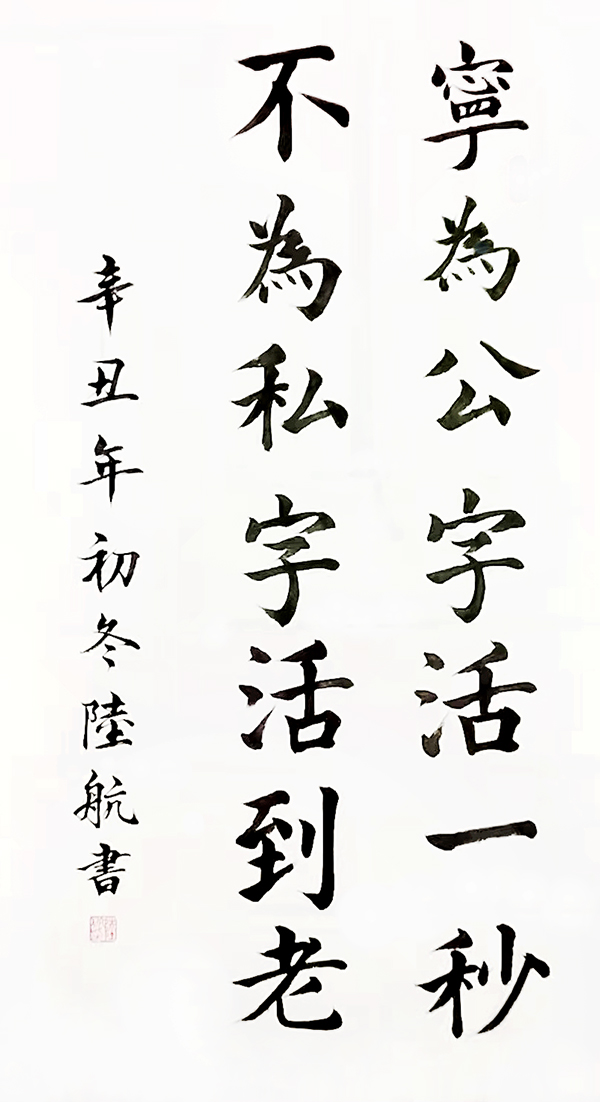 寧為公字活一秒
不為私字活到老
辛丑年初冬陸航書